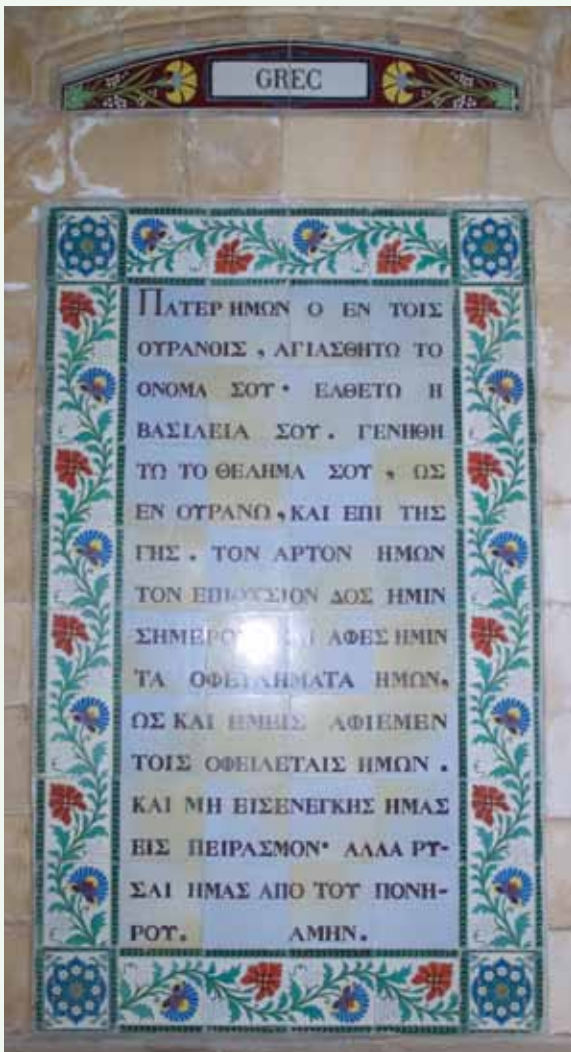 GREC
ΠΑΤΕΡ ΗΜΩΝ Ο ΕΝ ΤΟΙΣ
ΟΥΡΑΝΟΙΣ , ΑΓΙΑΣΘΗΤΩ ΤΟ
ΟΝΟΜΑ ΣΟΥ· ΕΛΘΕΤΩ Η
ΒΑΣΙΛΕΙΑ ΣΟΥ . ΓΕΝΗΘΗ
ΤΩ ΤΟ ΘΕΛΗΜΑ ΣΟΥ , ΩΣ
ΕΝ ΟΥΡΑΝΩ , ΚΑΙ ΕΠΙ ΤΗΣ
ΓΗΣ . ΤΟΝ ΑΡΤΟΝ ΗΜΩΝ
ΤΟΝ ΕΠΙΟΥΣΙΟΝ ΔΟΣ ΗΜΙΝ
ΑΦΕΣ ΗΜΙΝ
ΤΑ ΟΦΕΙΛΗΜΑΤΑ ΗΜΩΝ,
ΩΣ ΚΑΙ ΗΜΕΙΣ ΑΦΙΕΜΕΝ
ΤΟΙΣ ΟΦΕΙΛΕΤΑΙΣ ΗΜΩΝ .
ΚΑΙ ΜΗ ΕΙΣΕΝΕΓΚΗΣ ΗΜΑΣ
ΕΙΣ ΠΕΙΡΑΣΜΟΝ· ΑΛΛΑ ΡΥ-
ΣΑΙ ΗΜΑΣ ΑΠΟ ΤΟΥ ΠΟΝΗ-
ΡΟΥ. ΑΜΗΝ.